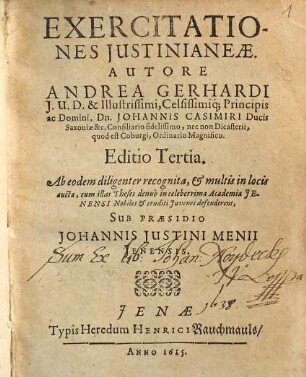 EXERCITATIO-
NES JUSTINIANEÆ.
AUTORE
ANDREA GERHARDI
J. U. D. & Illustrissimi, Celsissimiq; Principis
ac Domini, Dn. JOHANNIS CASIMIRI Ducis
Saxoniæ &c. Consiliario fidelissimo, nec non Dicasterii,
quod est Coburgi, Ordinario Magnifico.
Editio Tertia.
Ab eodem diligenter recognita, & multis in locis
aucta, cum istas Theses denuò in celeberrima Academia JE-
NENSI Nobiles & eruditi Juvenes defenderent,
SUB PRÆSIDIO
JOHANNIS JUSTINI MENII
JENENSIS.
Sum Ex Lib: Johan
JENÆ
Typis Heredum HENRICI Rauchmauls/
ANNO 1615.